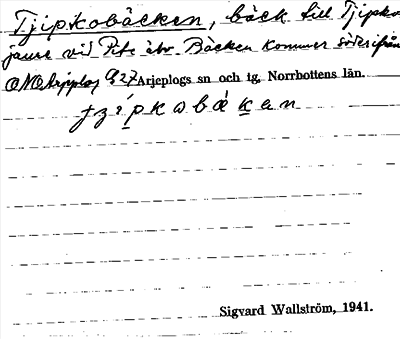 Tjipkobäcken, bäck till Tjipko
jaure vid Pite älv. Bäcken kommer söderifrån
Arjeplog 927 Arjeplogs sn och tg, Norrbottens län.
Sigvard Wallström, 1941.